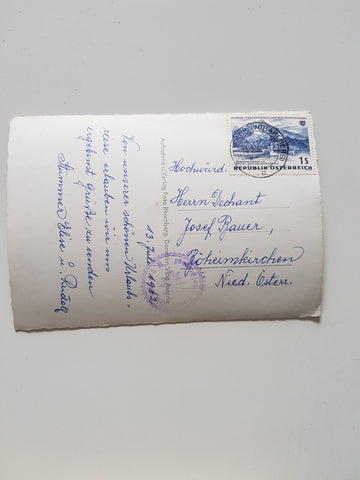 13. Juli 1962
Von unserer schönen Urlaubs-
reise erlauben wir uns
ergebenst Grüße zu senden
Stummer Elise u. Rudolf
Aufnahme u. Verlag Foto Rhomberg, Dornbirn
1 S
REPUBLIK ÖSTERREICH
Hochwürd.
Herrn Dechant
Josef Bauer,
Böheimkirchen
Nied. Österr.